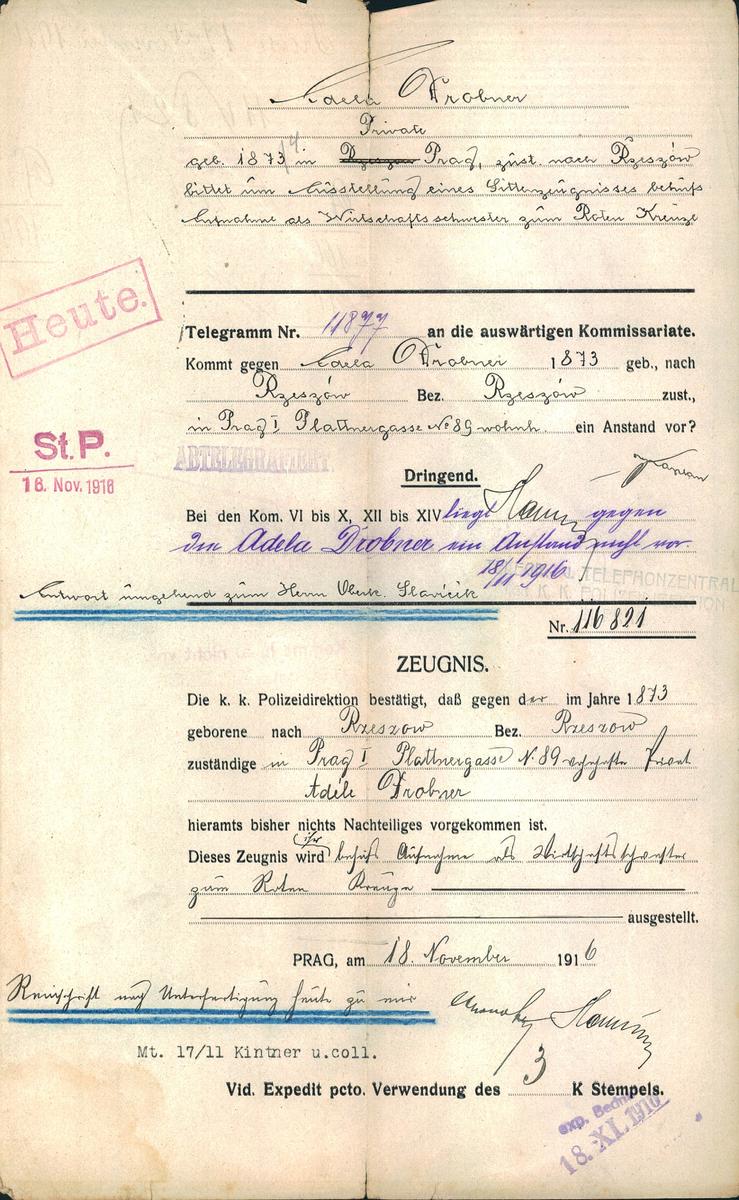 Adela Drobner
Private
geb. 1873/4 in Prag, züst. nach Rzeszów
bittet um Ausstellung eines Sittenzeugnisses behufs
Aufnahme als Wirtschaftsschwester zum Roten Kreuze
Heute.
Telegramm Nr. 11877 an die auswärtigen Kommissariate.
Kommt gegen Adela Drobner 1873 geb., nach
Rzeszów Bez. Rzeszów zust.,
in Prag I Plattnergasse No 89 wohnh. ein Anstand vor?
St. P.
16. Nov. 1916
ABTELEGRAFIERT.
Dringend.
Bei den Kom. VI bis X, XII bis XIV liegt gegen
die Adela Drobner ein Anstand nicht vor.
18/11 1916
TELEPHONZENTRAL
K. K. POLIZEIDIREKTION
Antwort umgehend zum Herrn Oberk. Slavíček
Nr. 116821
ZEUGNIS.
Die k. k. Polizeidirektion bestätigt, daß gegen der im Jahre 1873
geborene nach Rzeszow Bez. Rzeszow
zuständige in Prag I Plattnergasse N. 89 wohnhafte Privat
Adéle Drobner
hieramts bisher nichts Nachteiliges vorgekommen ist.
Dieses Zeugnis wird ihr behufs Aufnahme als Wirtschaftsschwester
zum Roten Kreuze
ausgestellt.
PRAG, am 18. November 1916
Reinschrift nach Unterfertigung heute zu mir
Mt. 17/11 Kintner u.coll.
Vid. Expedit pcto. Verwendung des 3 K Stempels.
18. XI. 1916